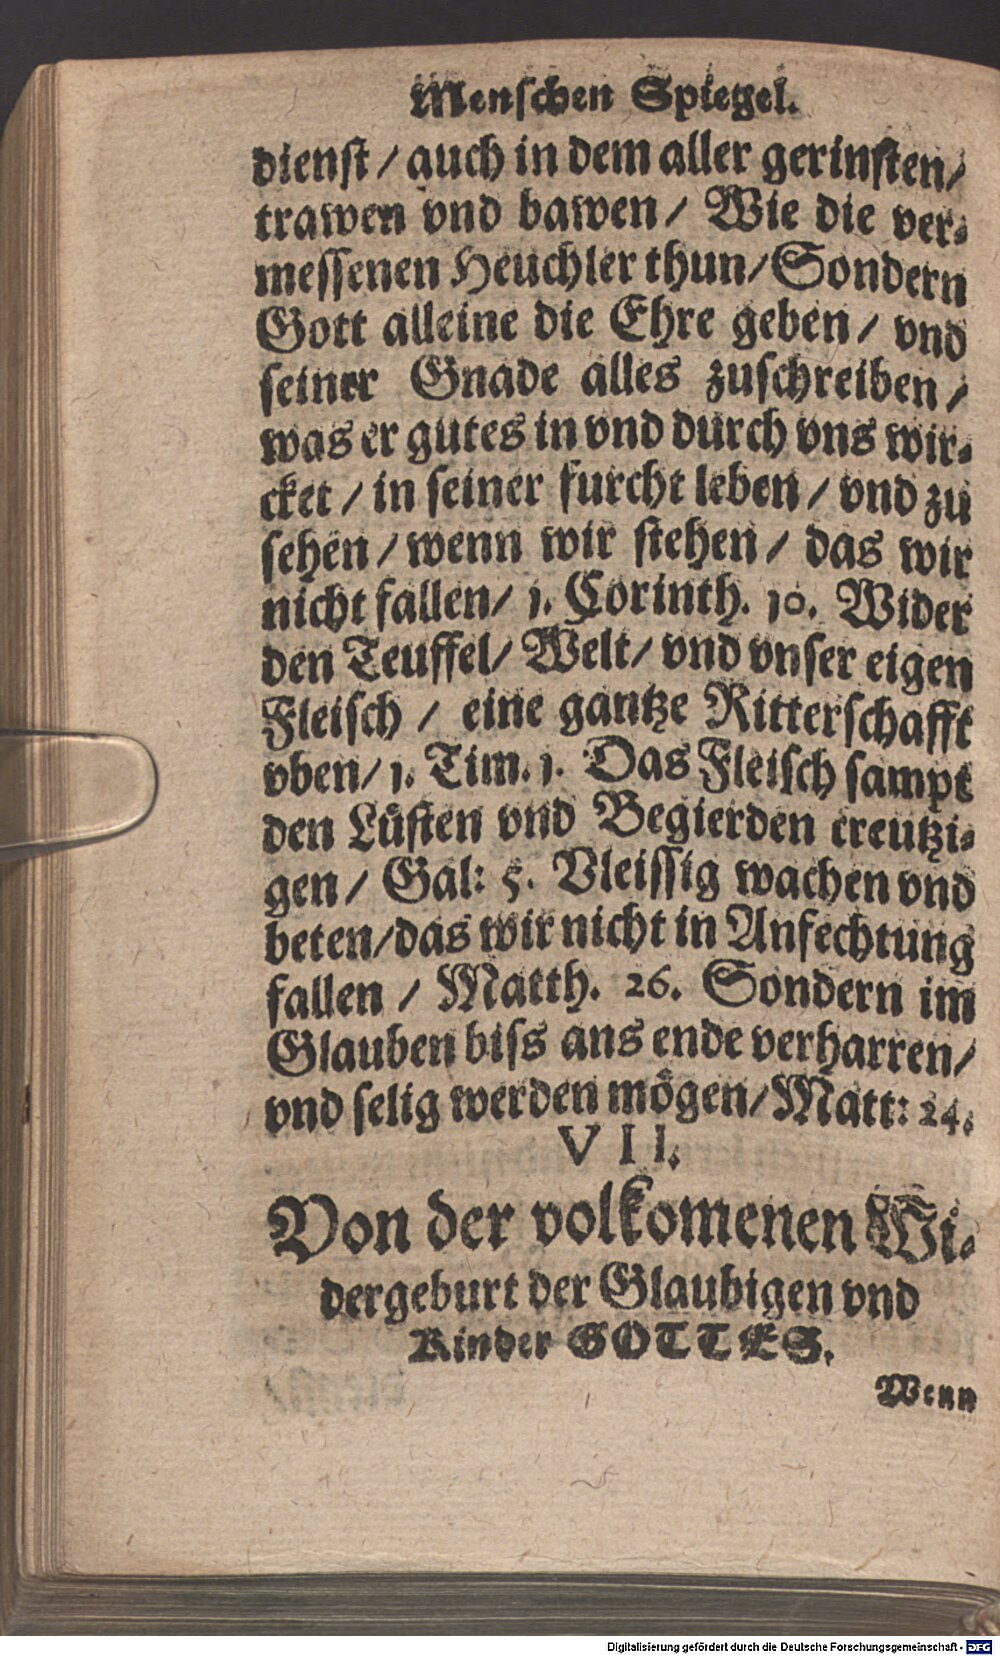 Menſchen Spiegel.
dienſt / auch in dem aller gerinſten/
trawen vnd bawen / Wie die ver-
meſſenen Heuchler thun/Sondern
Gott alleine die Ehre geben / vnd
ſeiner Gnade alles zuſchreiben /
was er gutes in vnd durch vns wir-
cket / in ſeiner furcht leben / vnd zu
ſehen / wenn wir ſtehen / das wir
nicht fallen/ 1. Corinth. 10. Wider
den Teuffel/ Welt/ vnd vnſer eigen
Fleiſch / eine gantze Ritterſchafft
vben/ 1. Tim. 1. Das Fleiſch ſampt
den Lüſten vnd Begierden creutzi-
gen / Gal: 5. Vleiſſig wachen vnd
beten/das wir nicht in Anfechtung
fallen / Matth. 26. Sondern im
Glauben biſs ans ende verharren/
vnd ſelig werden mögen/Matt: 24.
VII.
Von der volkomenen Wi-
dergeburt der Glaubigen vnd
Kinder GOTTES.
Wenn
Digitalisierung gefördert durch die Deutsche Forschungsgemeinschaft - DFG